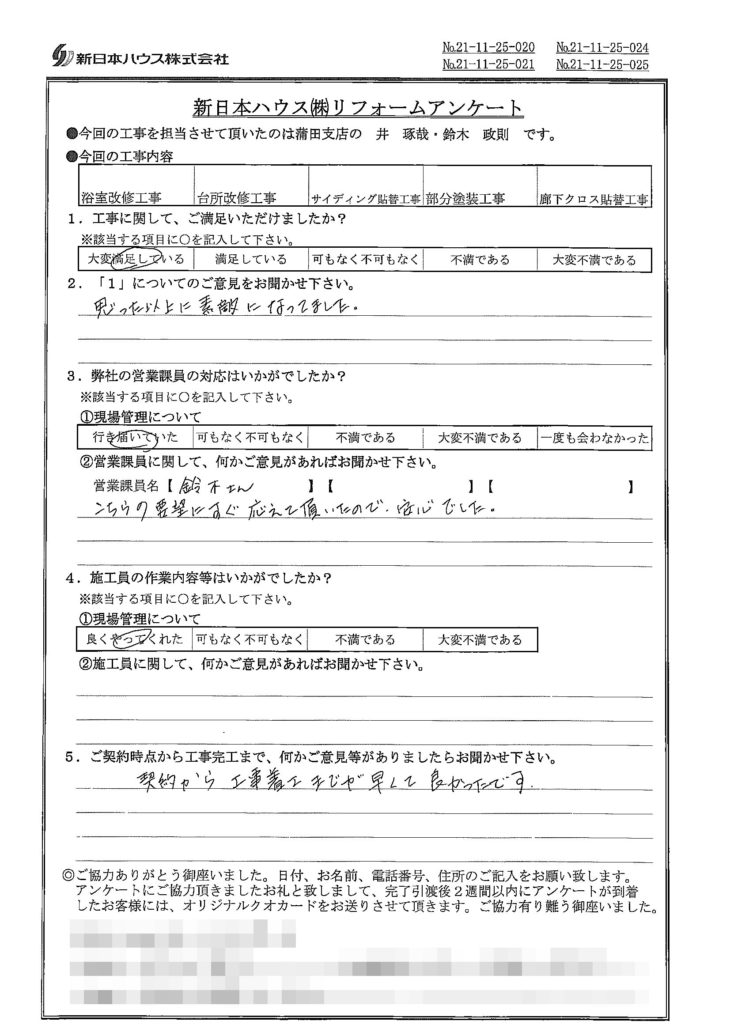 新日本ハウス株式会社
№21-11-25-020 №21-11-25-024
№21-11-25-021 №21-11-25-025
新日本ハウス㈱リフォームアンケート
●今回の工事を担当させて頂いたのは蒲田支店の 井 琢哉・鈴木 政則 です。
●今回の工事内容
浴室改修工事 台所改修工事 サイディング貼替工事 部分塗装工事 廊下クロス貼替工事
1．工事に関して、ご満足いただけましたか？
※該当する項目に○を記入して下さい。
大変満足している 満足している 可もなく不可もなく 不満である 大変不満である
2．「1」についてのご意見をお聞かせ下さい。
思った以上に素敵になってました。
3．弊社の営業課員の対応はいかがでしたか？
※該当する項目に○を記入して下さい。
①現場管理について
行き届いていた 可もなく不可もなく 不満である 大変不満である 一度も会わなかった
②営業課員に関して、何かご意見があればお聞かせ下さい。
営業課員名【 鈴木さん 】【 】【 】
こちらの要望にすぐ応えて頂いたので、安心でした。
4．施工員の作業内容等はいかがでしたか？
※該当する項目に○を記入して下さい。
①現場管理について
良くやってくれた 可もなく不可もなく 不満である 大変不満である
②施工員に関して、何かご意見があればお聞かせ下さい。
5．ご契約時点から工事完工まで、何かご意見等がありましたらお聞かせ下さい。
契約から工事着工までが早くて良かったです。
◎ご協力ありがとう御座いました。日付、お名前、電話番号、住所のご記入をお願い致します。
アンケートにご協力頂きましたお礼と致しまして、完了引渡後２週間以内にアンケートが到着
したお客様には、オリジナルクオカードをお送りさせて頂きます。ご協力有り難う御座いました。